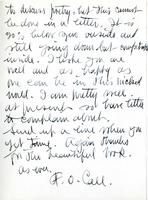 to discuss poetry, but this cannot
be done in a letter. It is
90% below zero outside and
still going down but comfortable
inside. I hope you are
well and as happy as
one can be in this wicked
world. I am pretty well
at present so have little
to complain about.
Send me a line when you
get time. Again thanks
for the beautiful book.
as ever
F. O. Call.